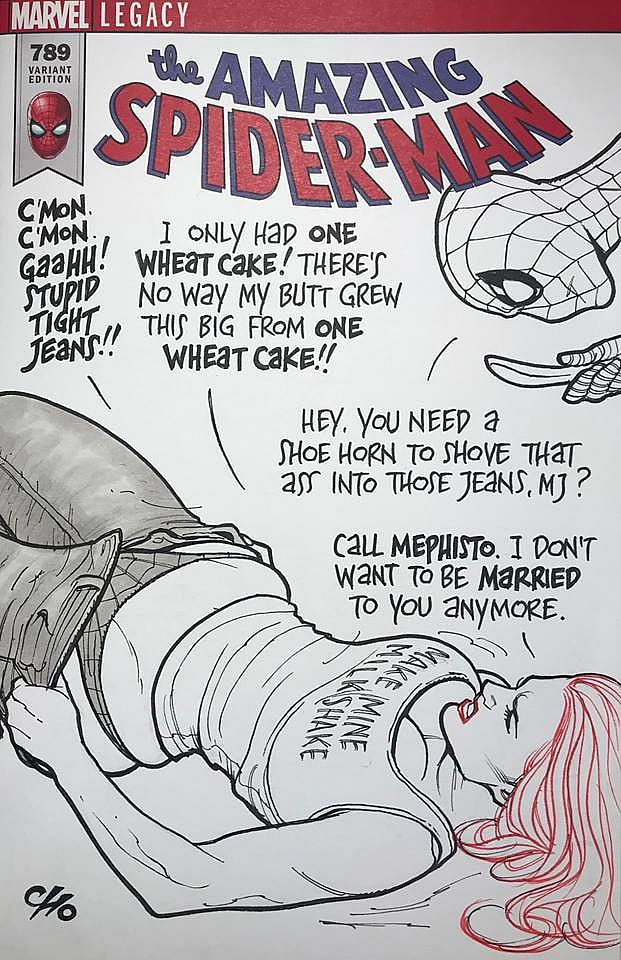 MARVEL LEGACY
789
VARIANT
EDITION
the AMAZING
SPIDER-MAN
C'MON.
C'MON.
GaaHH!
STUPID
TIGHT
JEANS!!
I ONLY HaD ONE
WHEaT CaKE! THERE'S
NO WAY MY BUTT GREW
THIS BIG FROM ONE
WHEaT CaKE!!
HEY, YOU NEED a
SHOE HORN TO SHOVE THaT
aSS INTO THOSE JEANS, MJ?
CaLL MEPHISTO. I DON'T
WaNT TO BE MaRRIED
TO YOU aNYMORE.
MAKE MINE
MILKSHAKE
CHO